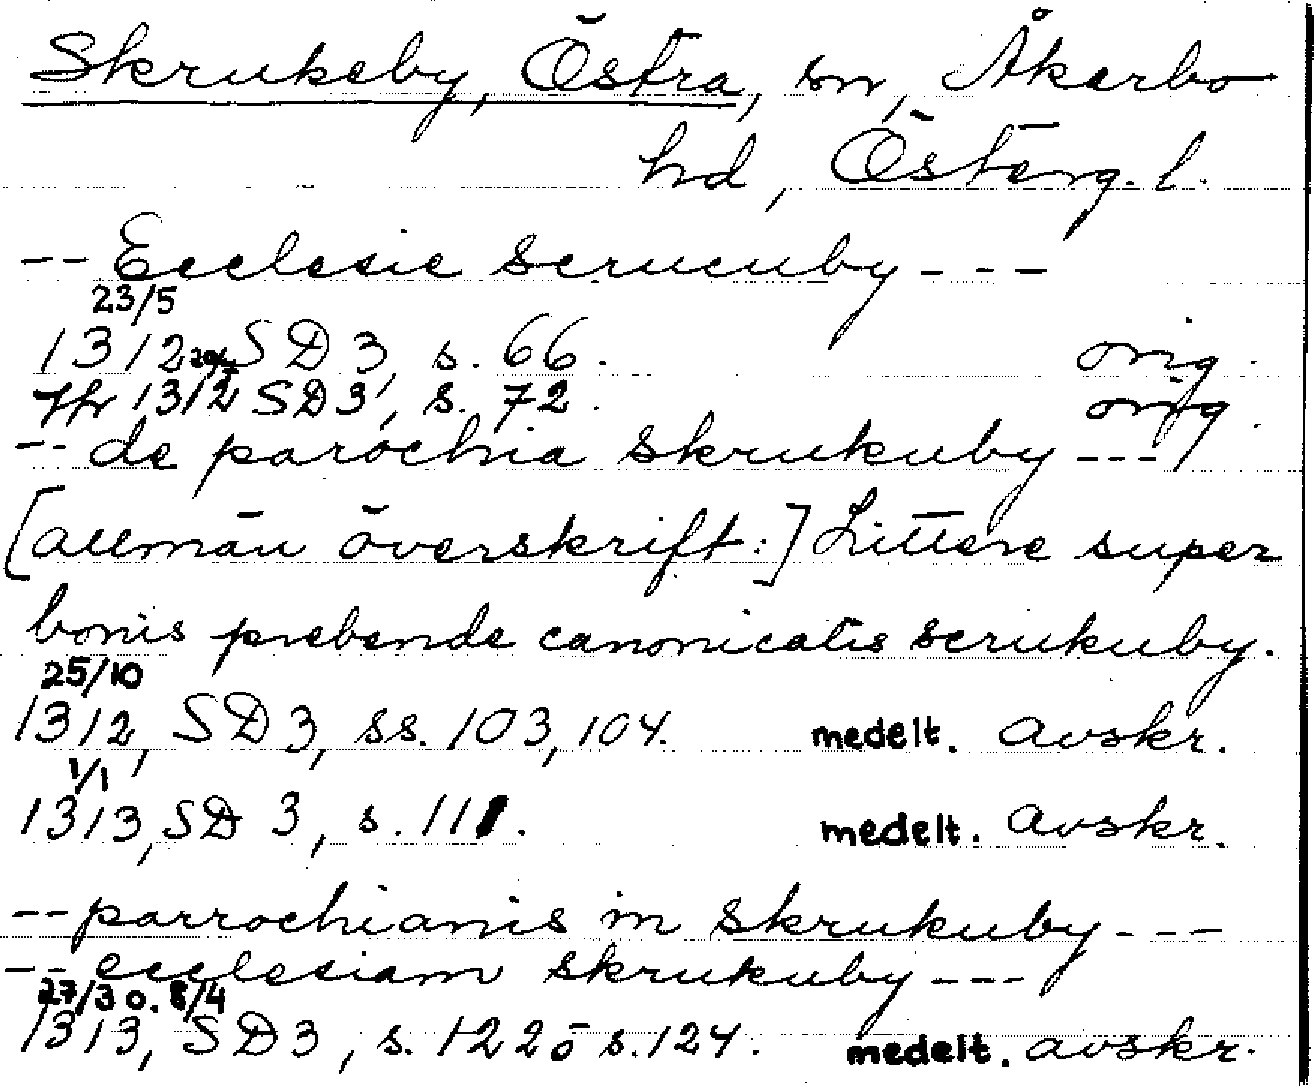 Skrukeby, Östra, sn, Åkerbo
hd, Österg. l.
-- Ecclesie Scrucuby ---
23/5
1312, SD 3, s. 66. orig.
1312 SD 3, s. 72. orig.
-- de parochia Skrukuby ---
[allmän överskrift:] Littere super
bonis prebende canonicatis Scrukuby.
25/10
1312, SD 3, ss. 103, 104. medelt. avskr.
1/1
1313, SD 3, s. 111. medelt. avskr.
-- parrochianis in Skrukuby ---
-- ecclesiam Skrukuby ---
27/3 o. 8/4
1313, SD 3, s. 122 o s. 124. medelt. avskr.